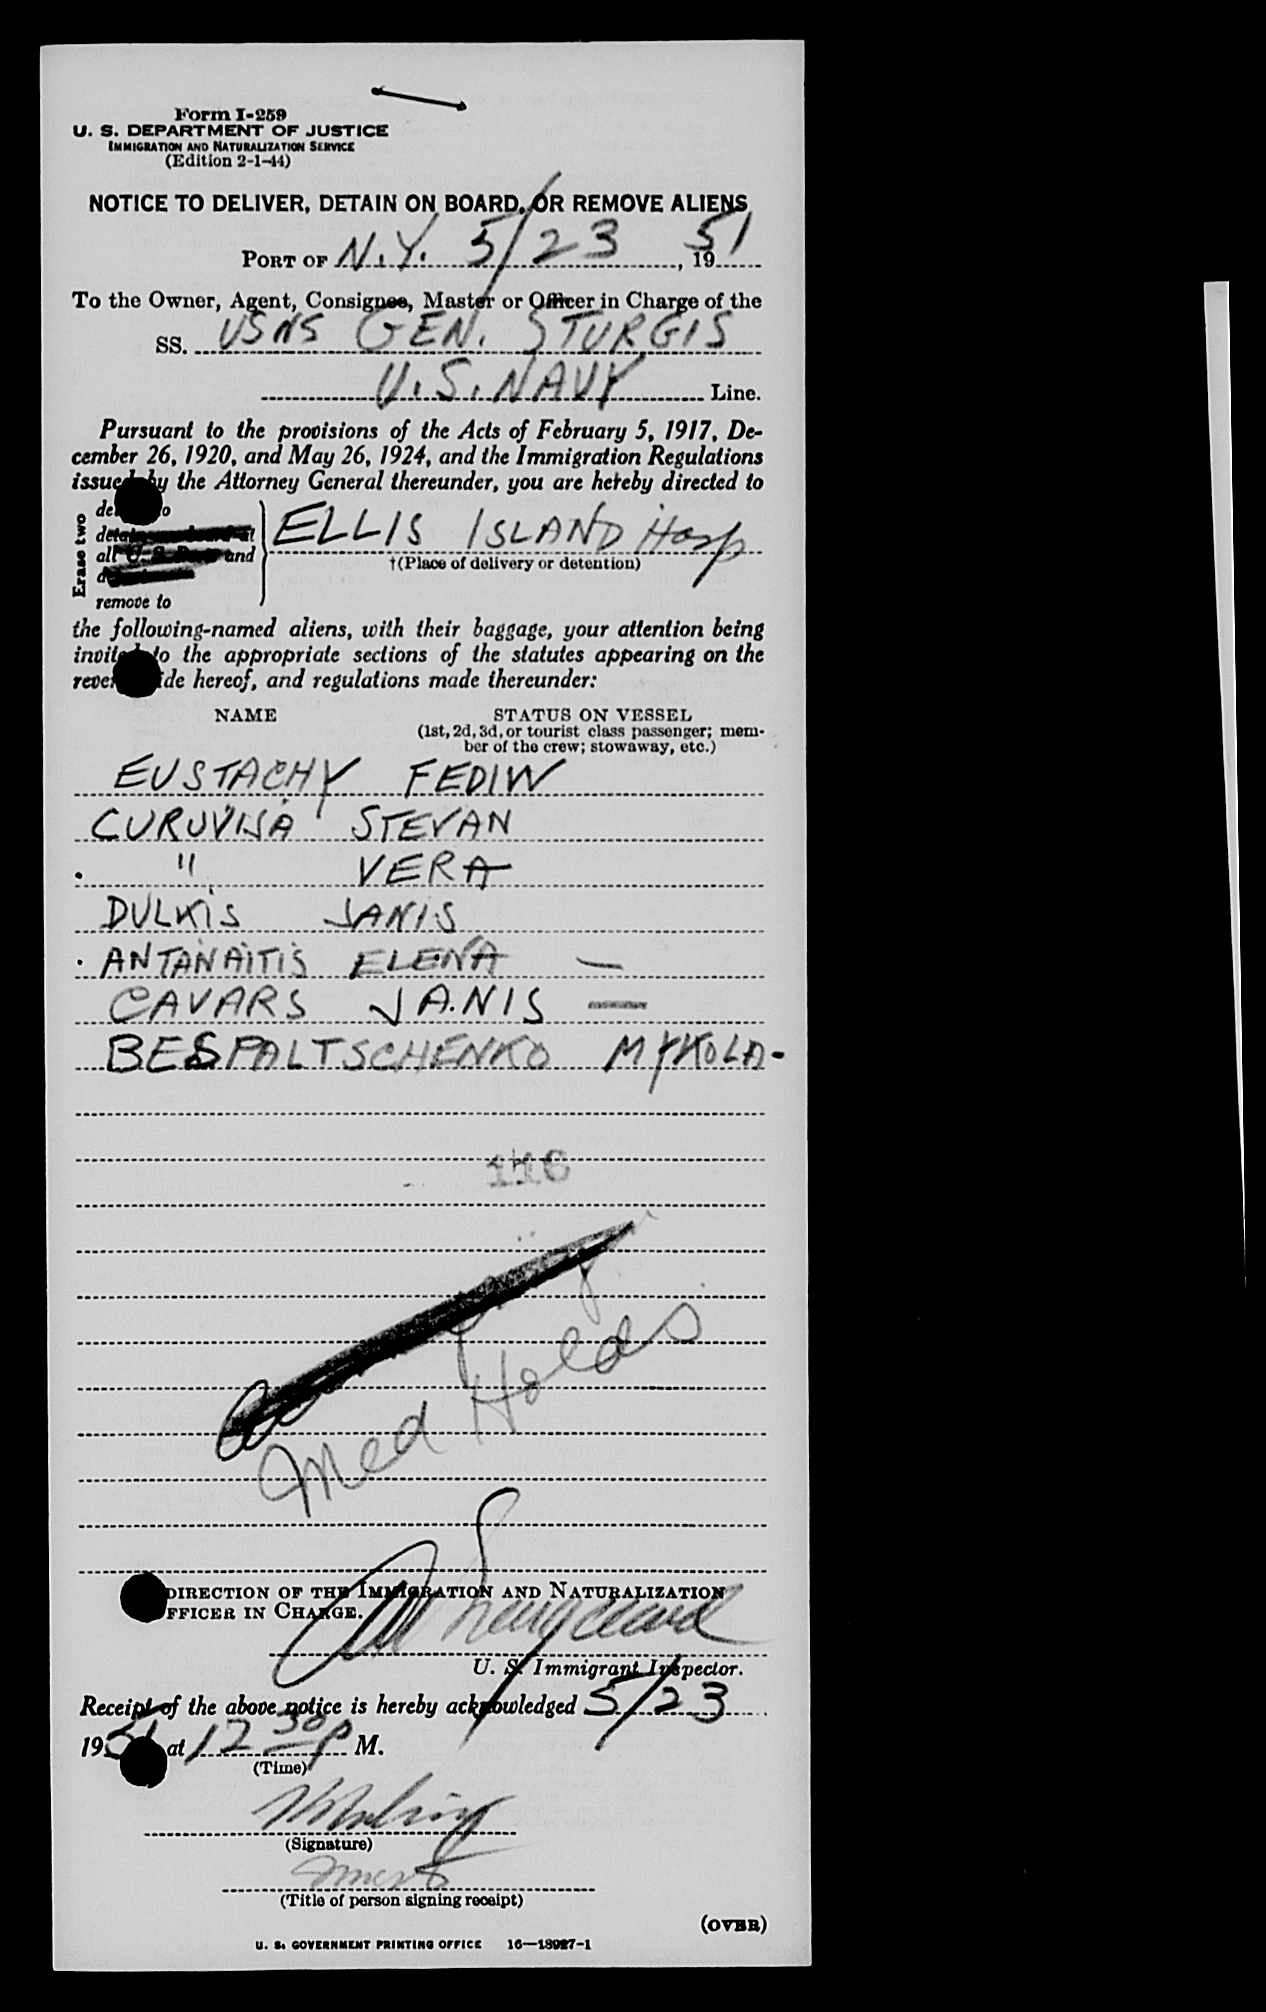 Form I-259
U. S. DEPARTMENT OF JUSTICE
IMMIGRATION AND NATURALIZATION SERVICE
(Edition 2-1-44)
NOTICE TO DELIVER, DETAIN ON BOARD, OR REMOVE ALIENS
PORT OF N.Y. 5/23, 1951
To the Owner, Agent, Consignee, Master or Officer in Charge of the
SS. USNS GEN. STURGIS
U.S. NAVY Line.
Pursuant to the provisions of the Acts of February 5, 1917, De-
cember 26, 1920, and May 26, 1924, and the Immigration Regulations
issued by the Attorney General thereunder, you are hereby directed to
Erase two
remove to
ELLIS ISLAND Hosp
†(Place of delivery or detention)
the following-named aliens, with their baggage, your attention being
invited to the appropriate sections of the statutes appearing on the
reverse side hereof, and regulations made thereunder:
NAME STATUS ON VESSEL
(1st, 2d, 3d, or tourist class passenger; mem-
ber of the crew; stowaway, etc.)
EUSTACHY FEDIW
CURUVIJA STEVAN
" VERA
DULKIS JANIS
ANTANAITIS ELENA —
CAVARS JANIS —
BESPALTSCHENKO MYKOLA -
Med Holds
DIRECTION OF THE IMMIGRATION AND NATURALIZATION
OFFICER IN CHARGE.
U. S. Immigrant Inspector.
Receipt of the above notice is hereby acknowledged 5/23
1951 at 12 30 P M.
(Time)
(Signature)
(Title of person signing receipt)
(OVER)
U. S. GOVERNMENT PRINTING OFFICE 16—18927-1